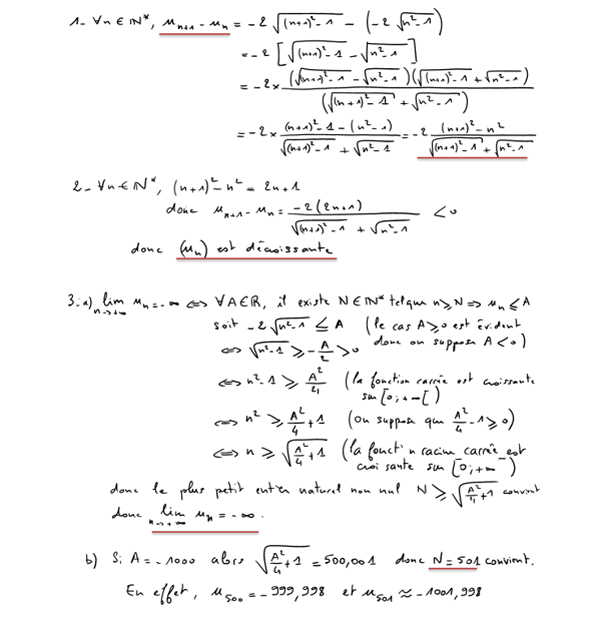 1- ∀n ∈ ℕ*, u_{n+1} - u_n = -2 √((n+1)² - 1) - (-2 √(n² - 1))
= -2 [√((n+1)² - 1) - √(n² - 1)]
= -2 × (√((n+1)² - 1) - √(n² - 1))(√((n+1)² - 1) + √(n² - 1)) / (√((n+1)² - 1) + √(n² - 1))
= -2 × ((n+1)² - 1 - (n² - 1)) / (√((n+1)² - 1) + √(n² - 1)) = -2 ((n+1)² - n²) / (√((n+1)² - 1) + √(n² - 1))
2- ∀n ∈ ℕ*, (n+1)² - n² = 2n+1
donc u_{n+1} - u_n = -2(2n+1) / (√((n+1)² - 1) + √(n² - 1)) < 0
donc (u_n) est décroissante
3- a) lim_{n→+∞} u_n = -∞ ⟺ ∀A∈ℝ, il existe N∈ℕ* tel que n ≥ N ⟹ u_n ≤ A
soit -2 √(n² - 1) ≤ A (le cas A ≥ 0 est évident
donc on suppose A < 0)
⟺ √(n² - 1) ≥ -A/2 > 0
⟺ n² - 1 ≥ A²/4 (la fonction carrée est croissante
sur [0; +∞[)
⟺ n² ≥ A²/4 + 1 (on suppose que A²/4 - 1 ≥ 0)
⟺ n ≥ √(A²/4 + 1) (la fonct'n racine carrée est
croi sante sur [0; +∞ )
donc le plus petit entier naturel non nul N ≥ √(A²/4 + 1) convient
donc lim_{n→+∞} u_n = -∞.
b) Si A = -1000 alors √(A²/4 + 1) = 500,001 donc N = 501 convient.
En effet, u_500 = -999,998 et u_501 ≈ -1001,998